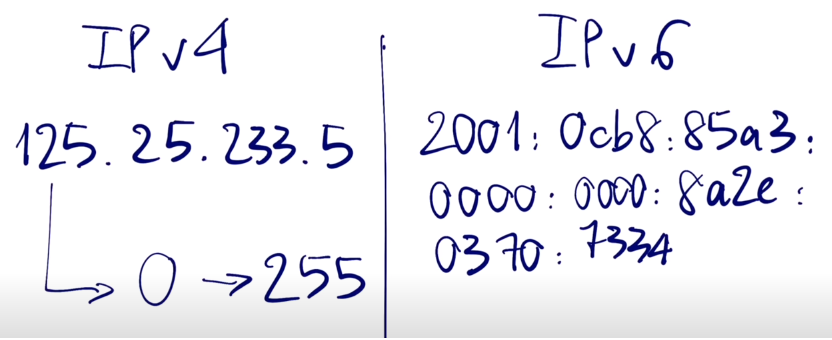 IPv4
125.25.233.5
0 → 255
IPv6
2001:0cb8:85a3:
0000:0000:8a2e:
0370:7334